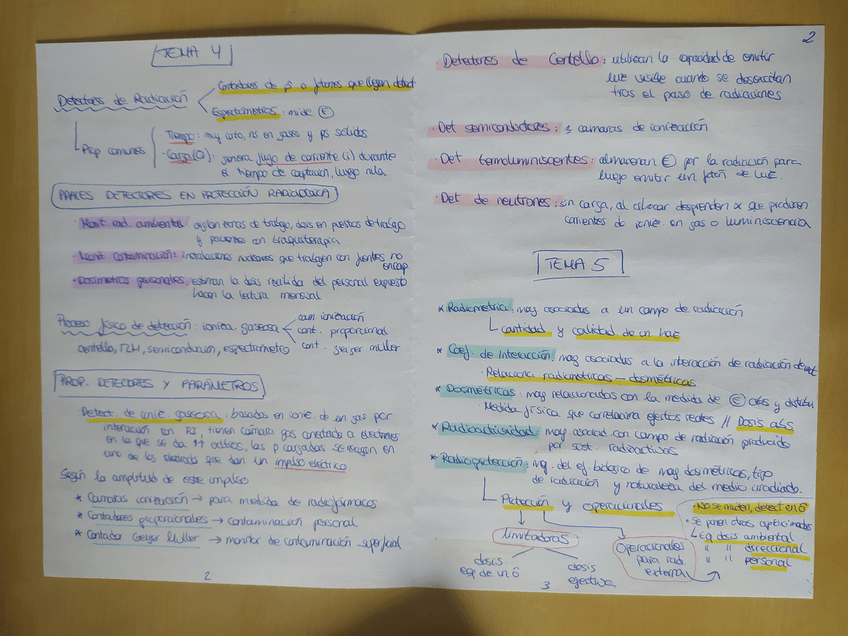 TEMA 4
Detectores de Radiación
Contadores de ps o fotones que llegan detect
Espectómetros: mide E
Prop comunes
Tiempo: muy corto, ns en gases y ps sólidos
Carga (Q): genera flujo de corriente (i) durante
el tiempo de captación, luego nula
PPALES DETECTORES EN PROTECCIÓN RADIOLÓGICA
· Monit rad. ambiental: vigilan zonas de trabajo, dosis en puestos de trabajo
y pacientes con braquiterapia
· Monit contaminación: instalaciones nucleares que trabajen con fuentes no
encap
· Dosímetros personales, estiman la dosis recibida del personal expuesto
hacen la lectura mensual
Proceso físico de detección: ioniza. gaseosa
cam ionización
cont. proporcional
cont. geiger müller
centello, TLM, semiconducion, espectrómetro
PROP. DETECTORES Y PARÁMETROS
Detect. de ionic gaseosa: basados en ionic de en gas por
interacción con RI, tienen cámara gas conectada a electrodos
en la que se da ↑↑ voltios, las p cargadas se recogen en
uno de los electrodos que dan un impulso eléctrico
Según la amplitud de este impulso
* Cámaras ionización → para medidas de radiofármacos
* Contadores proporcionales → contaminación personal
* Contador Geiger Müller → monitor de contaminación superficial
2
2
Detectores de Centello: utilizan la capacidad de emitir
luz visible cuando se desexcitan
tras el paso de radiaciones
· Det semiconductores: cámaras de ionización
· Det termoluminiscentes: almacenan E por la radiación para
luego emitir un fotón de luz.
· Det de neutrones: sin carga, al chocar desprenden α que producen
corrientes de ionic en gas o luminiscencia
TEMA 5
* Radiometría: mag asociadas a un campo de radiación
cantidad y calidad de un haz
* Coef. de Interacción: mag asociadas a la interacción de radiación
· Relaciona radiométricas – dosimétricas
* Dosimétricas: mag relacionadas con la medida de E abs y distribu
· Medida física que correlaciona efectos reales // Dosis abs
* Radioactividad: mag asociad. con campo de radiación producido
por sust. radioactivas
* Radioprotección: mg. del ef biologico de mag dosimétricas, tipo
de radiación y naturaleza del medio irradiado.
Protección y operacionales
limitadoras
dosis
eq de un ó
dosis
efectiva
Operacionales
para rad
externa
· No se miden, detect en ó
· Se ponen otras aproximadas
Eq dosis ambiental
" " direccional
" " personal
3